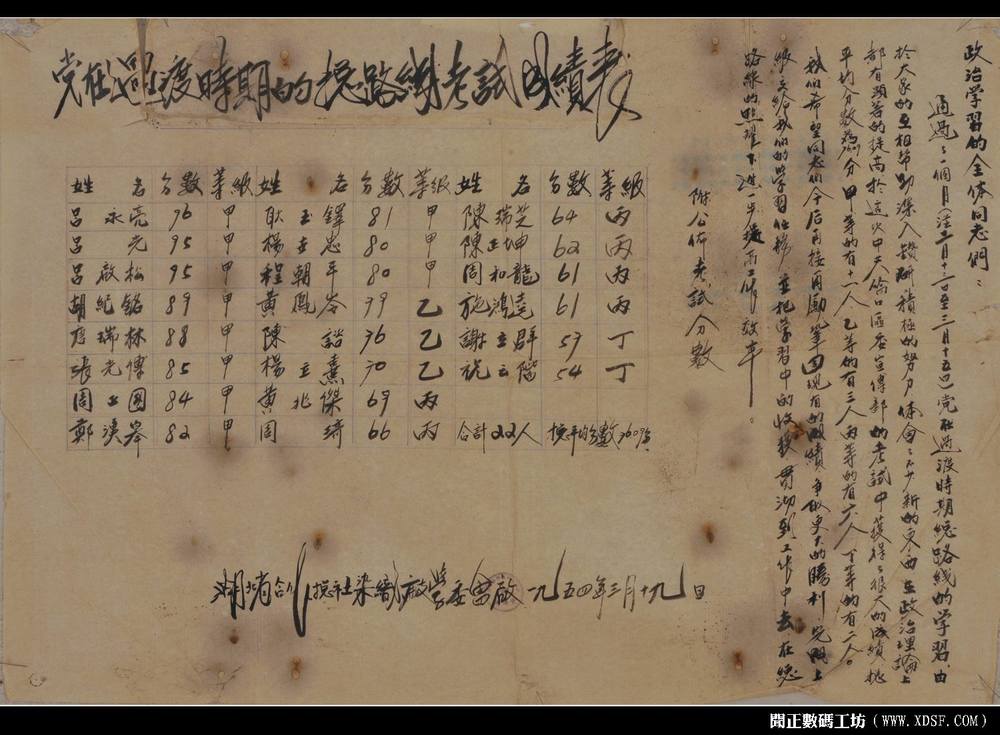 党在過渡時期的總路綫考試成績表
政治学習的全体同志們：
通过了一個月(從二月十二日至三月十五日)党在过渡時期總路线的学習，由
於大家的互相帮助深入鑽研積極的努力体会了不少新的東西在政治理論上
都有顯著的提高於這次中共
區委宣傳部的考試中獲得了很大的成績
平均分数為 分甲等的有十一人乙等的有三人丙等的有六人丁等的有二人。
我們希望同志們今后再接再励鞏固現有的成績争取更大的勝利完成上
級交給我們的学習任務並把学習中的收獲貫沏到工作中去在總
路線的照耀下進一步提高工作效率。
附公佈考試分數
姓名 分數 等級 姓名 分數 等級 姓名 分數 等級
呂永亮 96 甲 耿玉鐸 81 甲 陳瑞芝 64 丙
呂光 95 甲 楊志 80 甲 陳玉坤 62 丙
呂啟松 95 甲 程朝平 80 甲 周和龍 61 丙
胡紀銘 89 甲 黃鳳岑 79 乙 施鴻堯 61 丙
瑞林 88 甲 陳諮 76 乙 謝立群 57 丁
張光傳 85 甲 楊立熹 70 乙 54 丁
周國 84 甲 黃兆傑 69 丙
鄭漢 82 甲 周琦 66 丙 合計22人 總平均分數
總社染織廠学委会啟 一九五四年三月十九日
閱正數碼工坊（WWW.XDSF.COM）